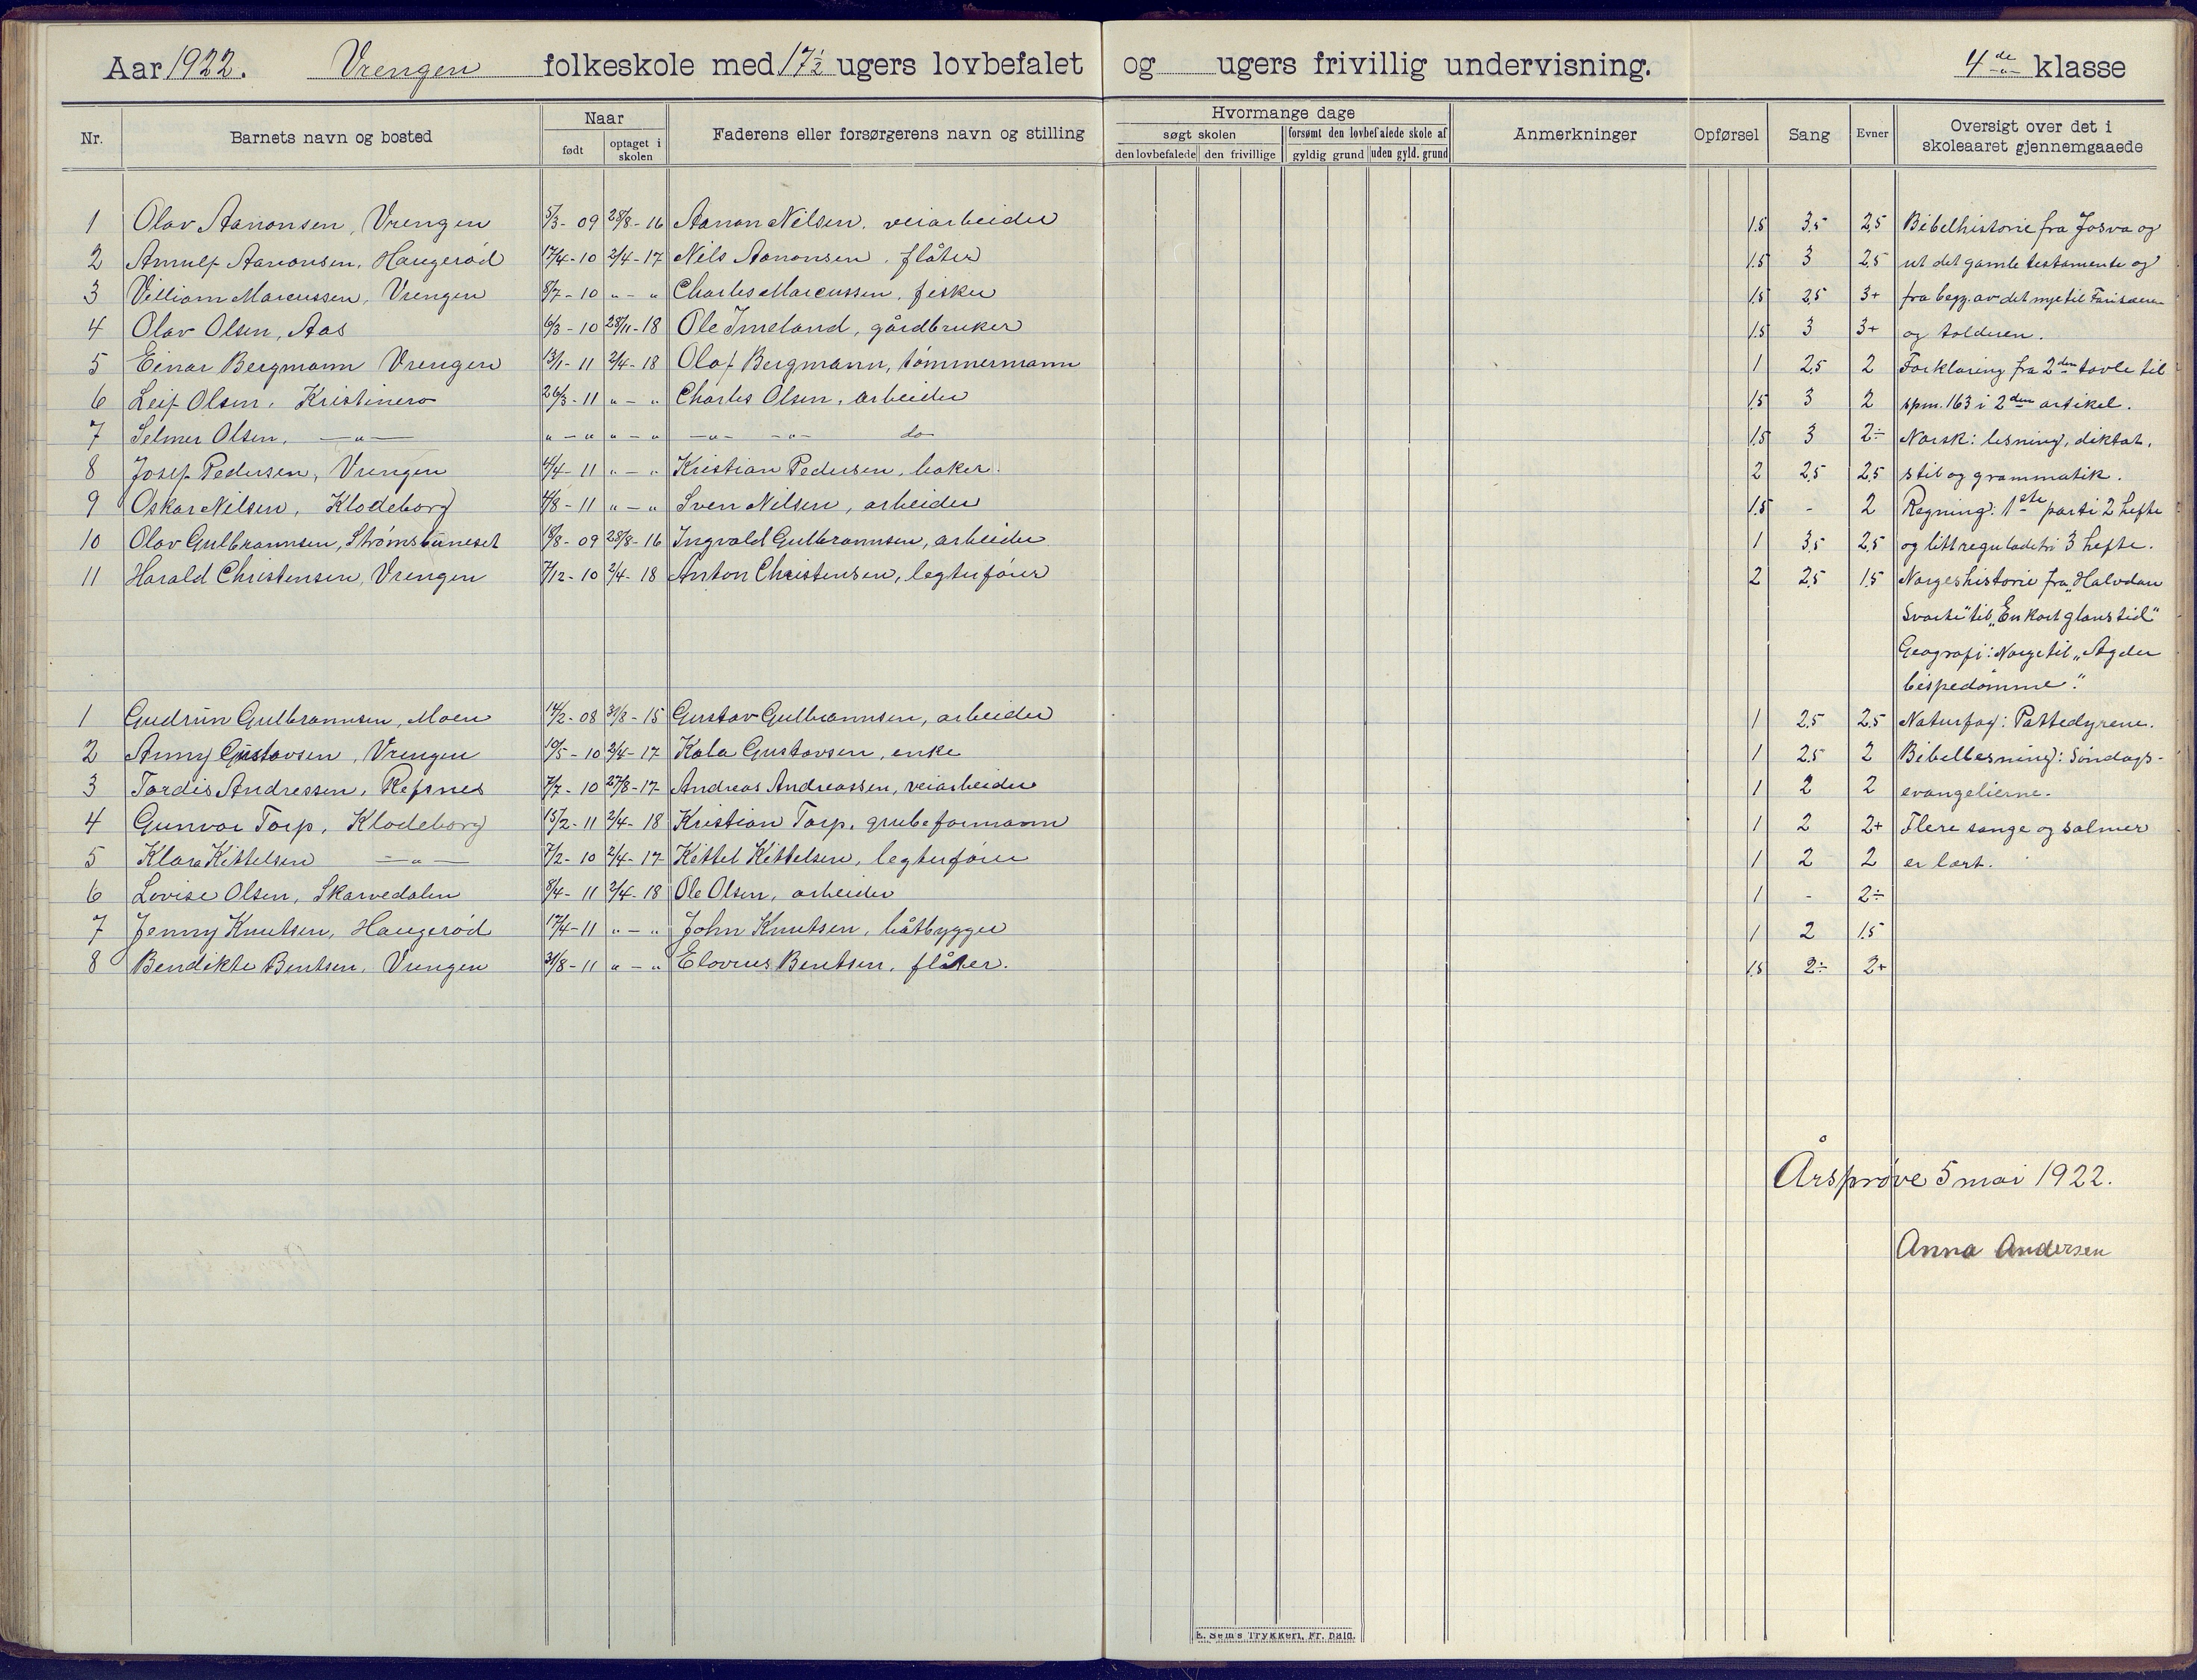 Aar 1922. Vrengen folkeskole med 17½ ugers lovbefalet og ugers frivillig undervisning. 4de klasse
Nr. Barnets navn og bosted Naar født optaget i skolen Faderens eller forsørgerens navn og stilling Hvormange dage søgt skolen den lovbefalede den frivillige forsømt den lovbefalede skole af gyldig grund uden gyld. grund Anmerkninger Opførsel Sang Evner Oversigt over det i skoleaaret gjennemgaaede
1 Olav Aanonsen, Vrengen 5/3-09 28/8-16 Aanon Nilsen, veiarbeider 1.5 3.5 2.5 Bibelhistorie fra Josva og
2 Arnulf Aanonsen, Haugerød 17/4-10 2/4-17 Nils Aanonsen, flåter 1.5 3 2.5 ut det gamle testamente og
3 Villiam Marcussen, Vrengen 8/7-10 "-" Charles Marcussen, fisker 1.5 2.5 3+ fra begg. av det nye til Farisæeren
4 Olav Olsen, Aas 6/3-10 28/11-18 Ole Imeland, gårdbruker 1.5 3 3+ og tolderen.
5 Einar Bergmann Vrengen 13/1-11 2/4-18 Olaf Bergmann, tømmermann 1 2.5 2 Forklaring fra 2den tavle til
6 Leif Olsen, Kristinero 26/3-11 "-" Charles Olsen, arbeider 1.5 3 2 spm. 163 i 2den artikel.
7 Selmer Olsen, -"- "-" "-" -"- -"- do 1.5 3 2÷ Norsk: lesning, diktat,
8 Josef Pedersen, Vrengen 4/4-11 "-" Kristian Pedersen, baker. 2 2.5 2.5 stil og grammatik.
9 Oskar Nilsen, Klodeborg 4/8-11 "-" Sven Nilsen, arbeider 1.5 - 2 Regning: 1ste parti 2 hefte
10 Olav Gulbrannsen, Strømsbuneset 10/8-09 28/8-16 Ingvald Gulbrannsen, arbeider 1 3.5 2.5 og litt reguladetri 3 hefte.
11 Harald Christensen, Vrengen 7/12-10 2/4-18 Anton Christensen, legterfører 2 2.5 1.5 Norgeshistorie fra "Halvdan
Svarte" til "En kort glanstid"
Geografi: Norge til "Agder
bispedømme".
1 Gudrun Gulbrannsen, Moen 14/2-08 31/8-15 Gustav Gulbrannsen, arbeider 1 2.5 2.5 Naturfag: Pattedyrene.
2 Anny Gustavsen, Vrengen 10/5-10 2/4-17 Kala Gustavsen, enke 1 2.5 2 Bibellesning: Søndags-
3 Tordis Andressen, Refsnes 7/7-10 27/8-17 Andreas Andreassen, veiarbeider 1 2 2 evangelierne.
4 Gunvor Torp, Klodeborg 13/2-11 2/4-18 Kristian Torp, grubeformann 1 2 2+ Flere sange og salmer
5 Klara Kittelsen -"- 7/2-10 2/4-17 Kittel Kittelsen, legterfører 1 2 2 er lært.
6 Lovise Olsen, Skarvedalen 8/4-11 2/4-18 Ole Olsen, arbeider 1 - 2÷
7 Jenny Knutsen, Haugerød 17/4-11 "-" John Knutsen, båtbygger 1 2 1.5
8 Bendikte Bentsen, Vrengen 31/8-11 "-" Elovius Bentsen, flåter. 1.5 2÷ 2+
Årsprøve 5 mai 1922.
Anna Andersen
E. Sem's Trykkeri, Fr. hald.